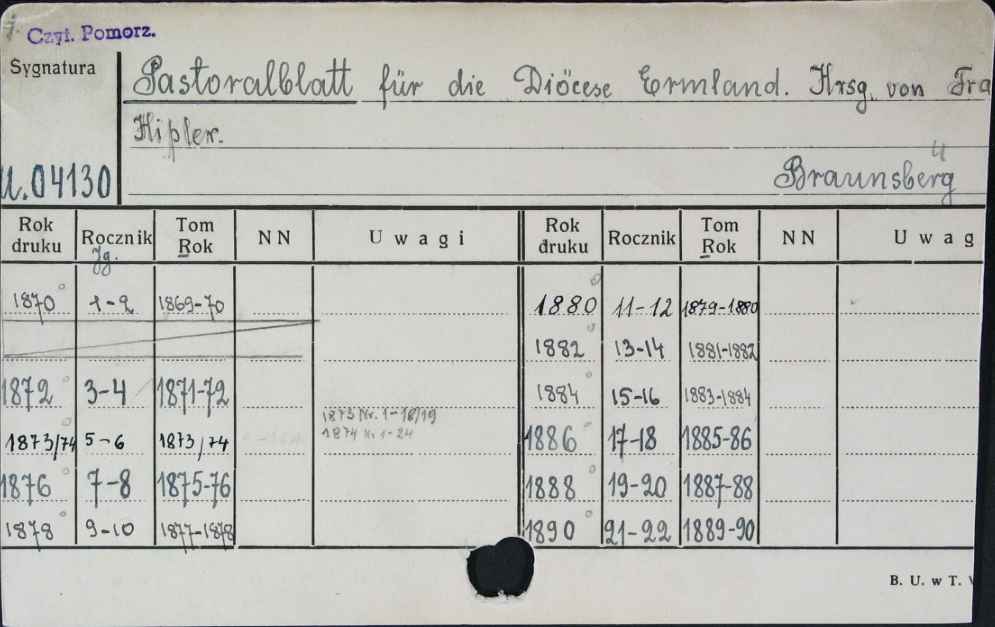 Czyt. Pomorz.
Sygnatura
Pastoralblatt für die Diöcese Ermland. Hrsg. von Fra
Hipler.
U.04130
Braunsberg
Rok druku Rocznik Tom Rok NN Uwagi Rok druku Rocznik Tom Rok NN Uwag
Jg.
1870 1-2 1869-70 1880 11-12 1879-1880
1882 13-14 1881-1882
1872 3-4 1871-72 1884 15-16 1883-1884
1873 Nr. 1-18/19
1873/74 5-6 1873/74 1874 Nr 1-24 1886 17-18 1885-86
1876 7-8 1875-76 1888 19-20 1887-88
1878 9-10 1877-1878 1890 21-22 1889-90
B. U. w T.